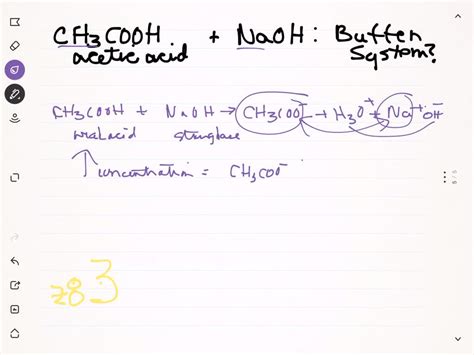 CH3COOH + NaOH : Buffer
acetic acid System?
CH3COOH + NaOH → CH3COO⁻ + H3O⁺ + Na⁺ OH⁻
weak acid strong base
↑ concentration = CH3COO⁻
z8 3